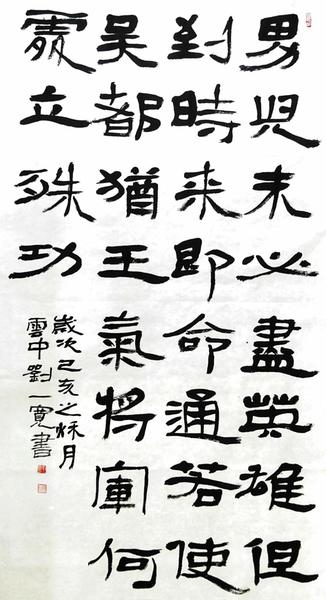 男兒未必盡英雄但
到時来即命通若使
吳都猶王氣將軍何
處立殊功
歲次己亥之秋月
雲中劉一寬書